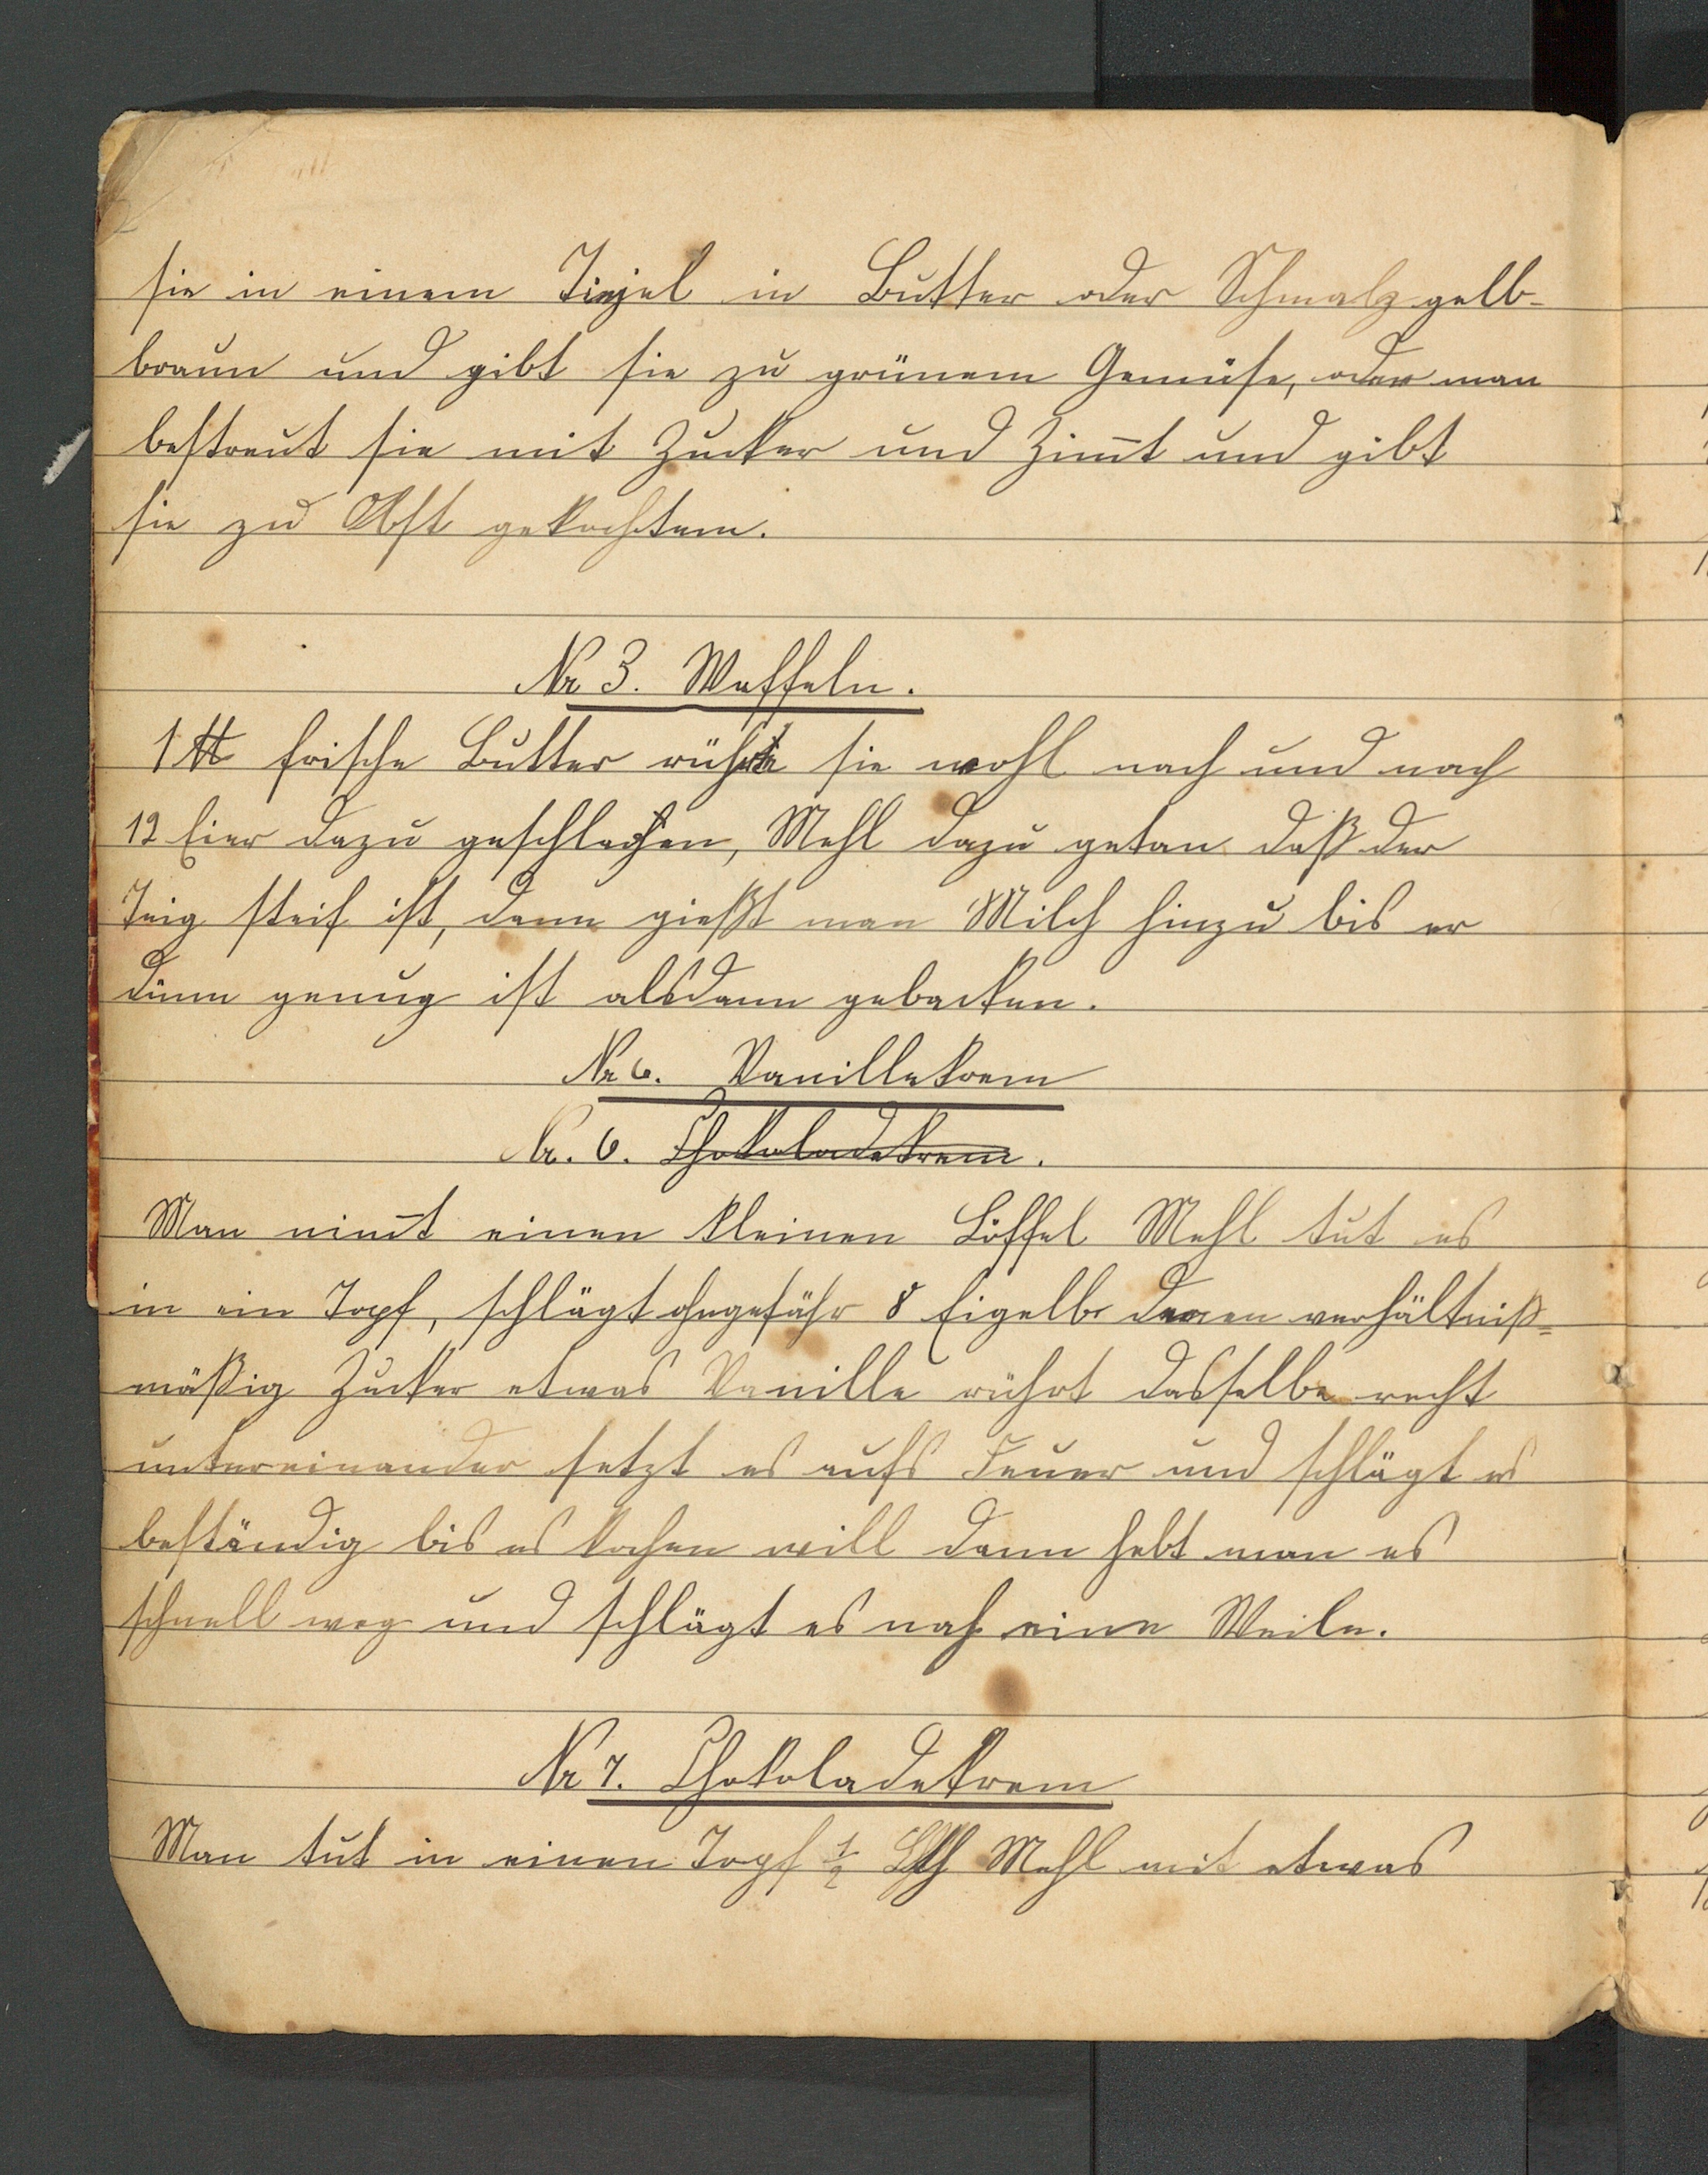 sie in einem Tiegel in Butter oder Schmalz gelb-
braun und gibt sie zu grünem Gemüse, oder man
bestreut sie mit Zucker und Zim̄t und gibt
sie zu Obst gekochtem.
Nr 3. Waffeln.
1 ℔ frische Butter rührt sie wohl nach und nach
12 Eier dazu geschlagen, Mehl dazu getan daß der
Teig steif ist, dann gießt man Milch hinzu bis er
dünn genug ist alsdann gebacken.
Nr 6. Vanillekrem
Nr. 6. Chokoladekrem.
Man nim̄t einen kleinen Löffel Mehl tut es
in ein Topf, schlägt ohngefähr 8 Eigelb daran verhältniß=
mäßig Zucker etwas Vanille rührt dasselbe recht
untereinander setzt es aufs Feuer und schlägt es
beständig bis es kochen will dann hebt man es
schnell weg und schlägt es noch eine Weile.
Nr 7. Chokoladekrem
Man tut in einen Topf ½ Mehl mit etwas